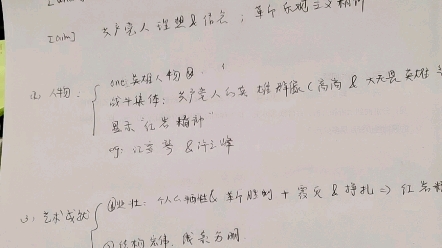 [aim] 共产党人理想&信念；革命乐观主义精神
② 人物：
one 英雄人物
战斗集体：共产党人的英雄群像（高尚&大无畏英雄
显示"红岩精神"
eg: 江雪琴&许云峰
③ 艺术成就
个人牺牲&革命胜利 + 毁灭&挣扎 => 红岩精
线条分明